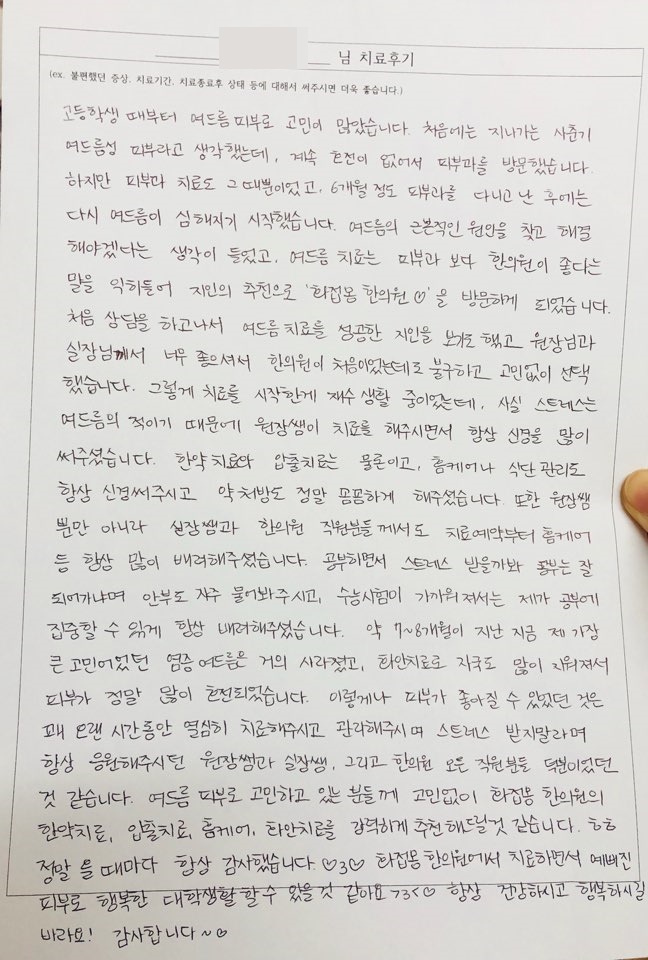 님 치료후기
(ex. 불편했던 증상, 치료기간, 치료종료후 상태 등에 대해서 써주시면 더욱 좋습니다.)
고등학생 때부터 여드름 피부로 고민이 많았습니다. 처음에는 지나가는 사춘기
여드름성 피부라고 생각했는데, 계속 호전이 없어서 피부과를 방문했습니다.
하지만 피부과 치료도 그때뿐이었고, 6개월 정도 피부과를 다니고 난 후에는
다시 여드름이 심해지기 시작했습니다. 여드름의 근본적인 원인을 찾고 해결
해야겠다는 생각이 들었고, 여드름 치료는 피부과 보다 한의원이 좋다는
말을 익히들어 지인의 추천으로 '화접몽 한의원♡'을 방문하게 되었습니다.
처음 상담을 하고나서 여드름치료를 성공한 지인을 보기도 했고 원장님과
실장님께서 너무 좋으셔서 한의원이 처음이었는데도 불구하고 고민없이 선택
했습니다. 그렇게 치료를 시작한게 재수생활 중이었는데, 사실 스트레스는
여드름의 적이기 때문에 원장쌤이 치료를 해주시면서 항상 신경을 많이
써주셨습니다. 한약 치료와 압출치료는 물론이고, 홈케어나 식단관리도
항상 신경써주시고 약처방도 정말 꼼꼼하게 해주셨습니다. 또한 원장쌤
뿐만 아니라 실장쌤과 한의원 직원분들께서도 치료예약부터 홈케어
등 항상 많이 배려해주셨습니다. 공부하면서 스트레스 받을까봐 공부는 잘
되어가냐며 안부도 자주 물어봐주시고, 수능시험이 가까워져서는 제가 공부에
집중할 수 있게 항상 배려해주셨습니다. 약 7~8개월이 지난 지금 제 가장
큰 고민이었던 염증여드름은 거의 사라졌고, 화안치료로 자국도 많이 지워져서
피부가 정말 많이 호전되었습니다. 이렇게나 피부가 좋아질 수 있었던 것은
꽤 오랜 시간동안 열심히 치료해주시고 관리해주시며 스트레스 받지말라며
항상 응원해주시던 원장쌤과 실장쌤, 그리고 한의원 모든 직원분들 덕분이었던
것 같습니다. 여드름 피부로 고민하고 있는 분들께 고민없이 화접몽 한의원의
한약치료, 압출치료, 홈케어, 화안치료를 강력하게 추천해드릴것 같습니다. ㅎㅎ
정말 올 때마다 항상 감사했습니다.♡3♡ 화접몽 한의원에서 치료하면서 예뻐진
피부로 행복한 대학생활 할 수 있을것 같아요 >3<♡ 항상 건강하시고 행복하시길
바라요! 감사합니다~♡